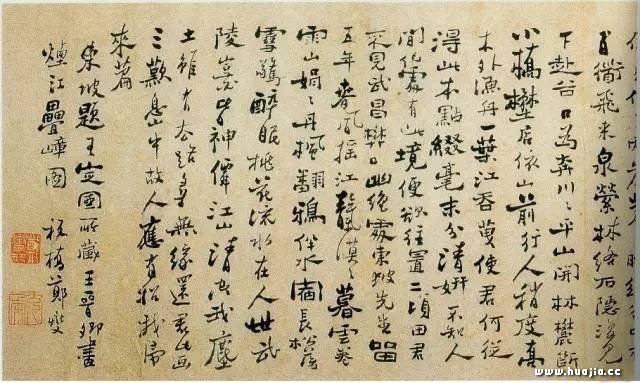 百衟飛來泉縈林絡石隱復見
下赴谷口為奔川〻平山開林麓斷
小橋埜店依山前行人稍度喬
木外漁舟一葉江吞 使君何從
得此本點綴毫末分清妍不知人
間何處有此境便欲往置二頃田君
不見武昌樊口幽絕處東坡先生留
五年春風搖江 漠〻暮雲卷
雨山娟〻丹楓翻鴉伴水宿長松落
雪驚醉眠桃花流水在人世武
陵豈皆神僊江山清空我塵
土雖有去路尋無緣還君此畫
三歎息山中故人應有招我歸
來篇
東坡題王定國所藏王晉卿畫
煙江疊嶂圖 板橋鄭燮
www.huajia.cc